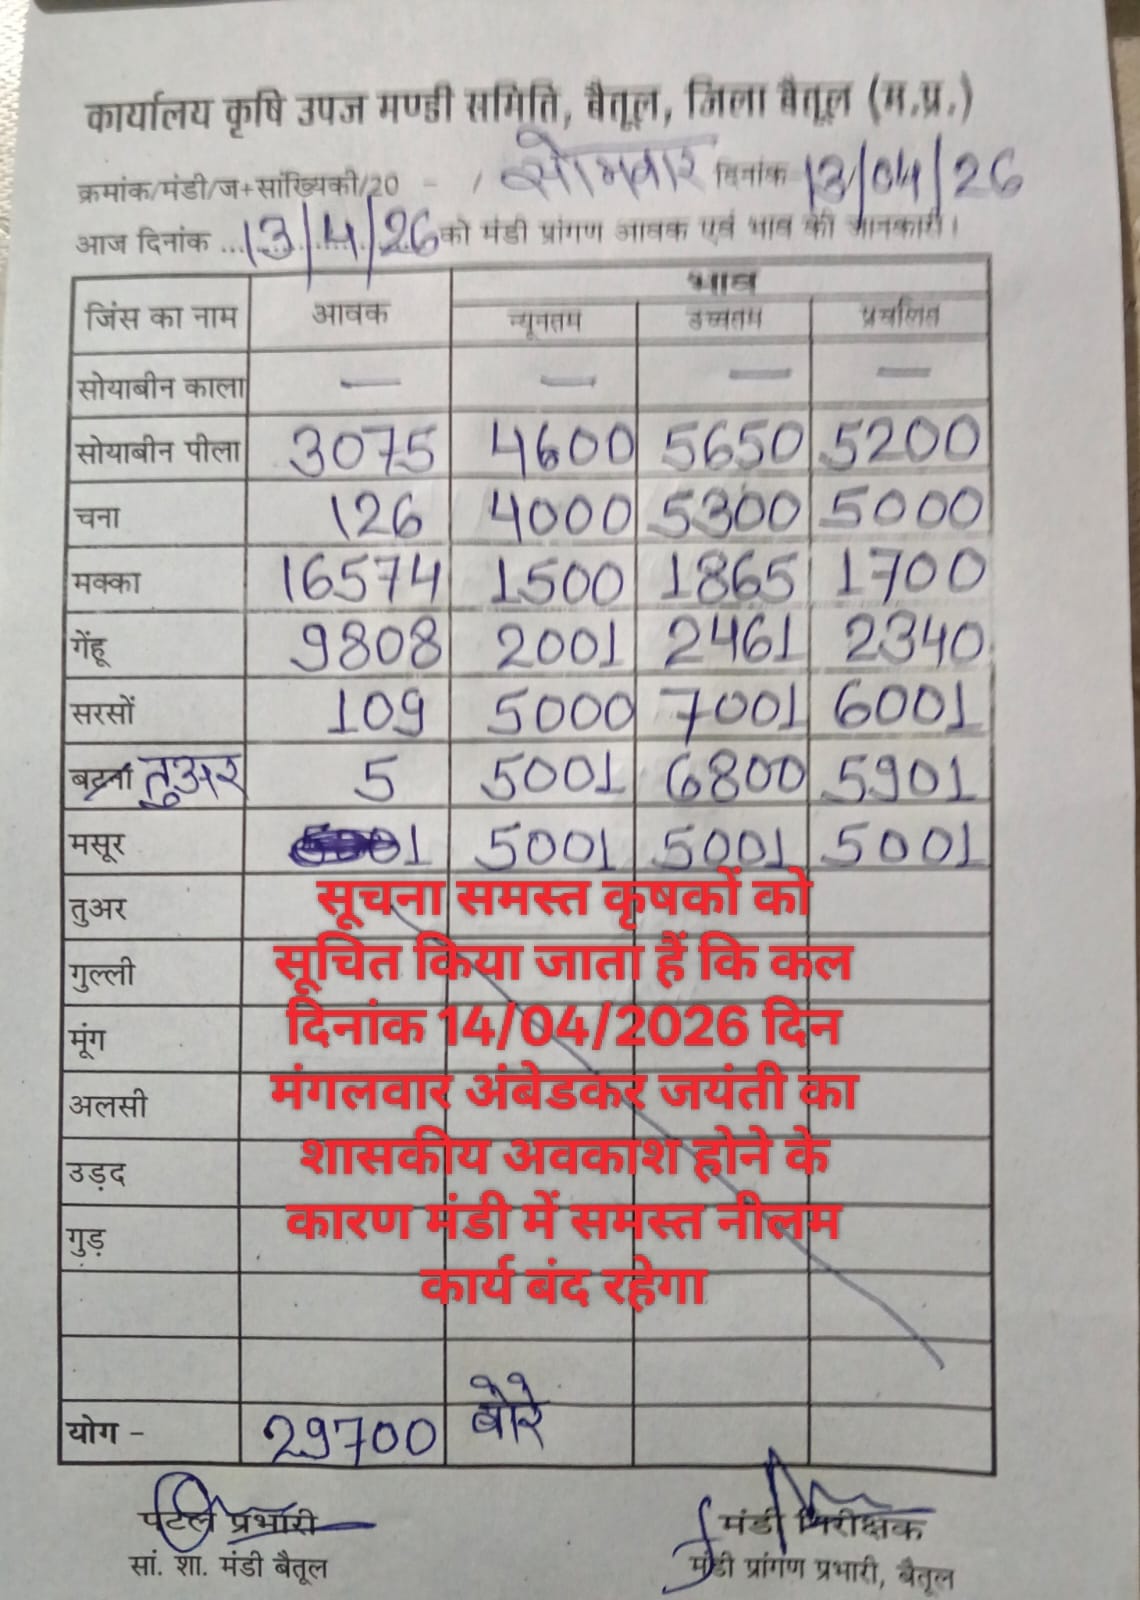 कार्यालय कृषि उपज मण्डी समिति, बैतूल, जिला बैतूल (म.प्र.)
क्रमांक/मंडी/ज+सांख्यिकी/20 - / सोमवार दिनांक 13/04/26
आज दिनांक ...13/4/26 को मंडी प्रांगण आवक एवं भाव की जानकारी।
भाव
जिंस का नाम आवक न्यूनतम उच्चतम प्रचलित
सोयाबीन काला — — — —
सोयाबीन पीला 3075 4600 5650 5200
चना 126 4000 5300 5000
मक्का 16574 1500 1865 1700
गेंहू 9808 2001 2461 2340
सरसों 109 5000 7001 6001
बटना तुअर 5 5001 6800 5901
मसूर 1 5001 5001 5001
तुअर
गुल्ली
मूंग
अलसी
उड़द
गुड़
सूचना समस्त कृषकों को
सूचित किया जाता हैं कि कल
दिनांक 14/04/2026 दिन
मंगलवार अंबेडकर जयंती का
शासकीय अवकाश होने के
कारण मंडी में समस्त नीलम
कार्य बंद रहेगा
योग - 29700 बोरे
प्रभारी मंडी निरीक्षक
सां. शा. मंडी बैतूल मंडी प्रांगण प्रभारी, बैतूल